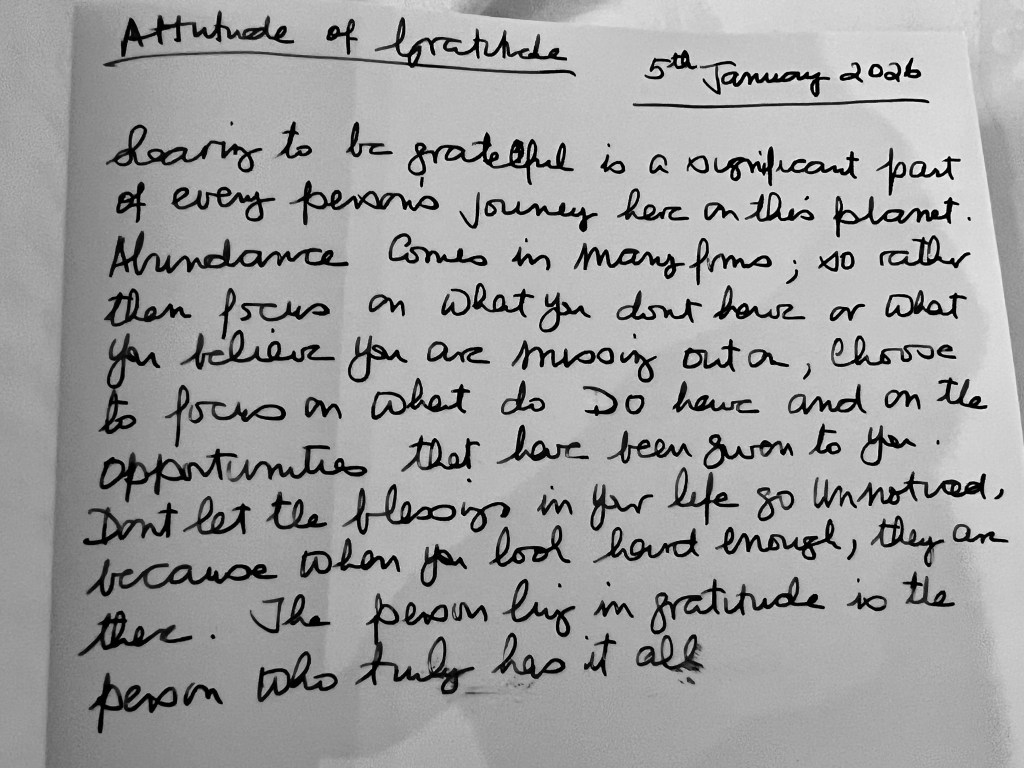 Attitude of Gratitude
5th January 2026
Learning to be grateful is a significant part
of every person's journey here on this planet.
Abundance Comes in many forms; so rather
than focus on what you dont have or what
you believe you are missing out on, Choose
to focus on what do DO have and on the
opportunities that have been given to you.
Dont let the blessings in your life go Unnoticed,
because when you look hard enough, they are
there. The person living in gratitude is the
person who truly has it all